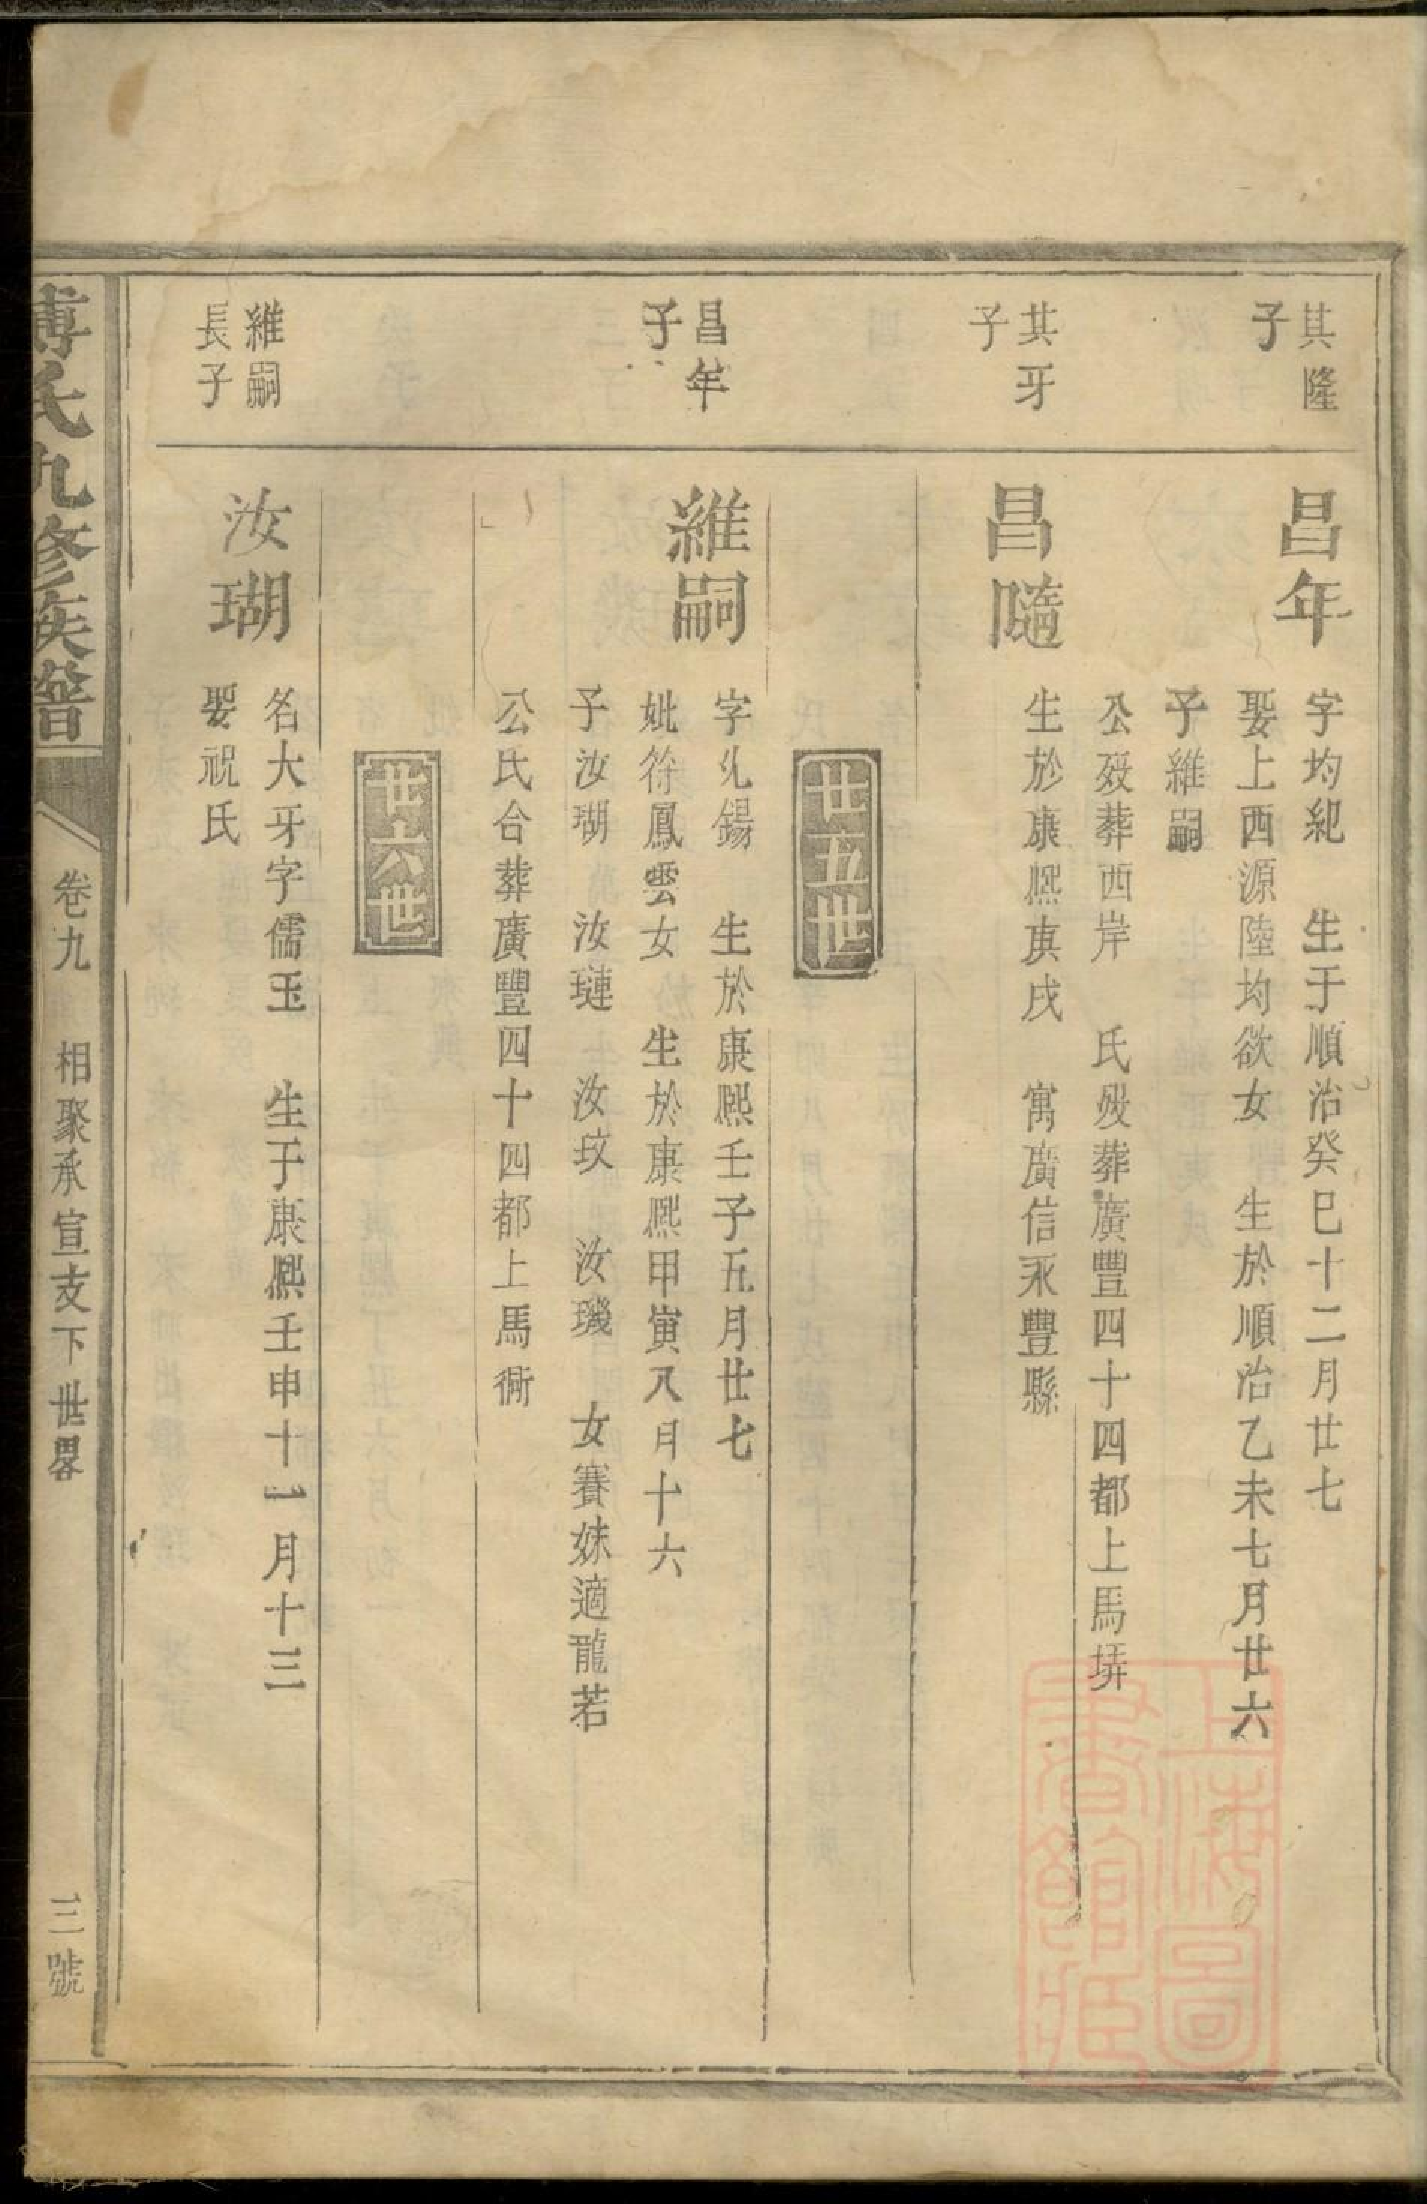 其隆
子
昌年
字均紀　生于順治癸巳十二月廿七
娶上西源陸均欲女　生於順治乙未七月廿六
子維嗣
公歿葬西岸　氏歿葬廣豐四十四都上馬塝
其牙
子
昌隨
生於康熈庚戌　寓廣信永豐縣
廿五世
昌年
子
維嗣
字　錫　生於康熈壬子五月廿七
妣符鳳雲女　生於康熈甲寅八月十六
子汝瑚　汝璉　汝玟　汝璣　女賽妹適龍若
公氏合葬廣豐四十四都上馬
廿六世
維嗣
長子
汝瑚
名大牙字儒玉　生于康熈壬申十一月十三
娶祝氏
傅氏九修族譜
卷九
相聚承宣支下世畧
三號
上海圖
書館藏